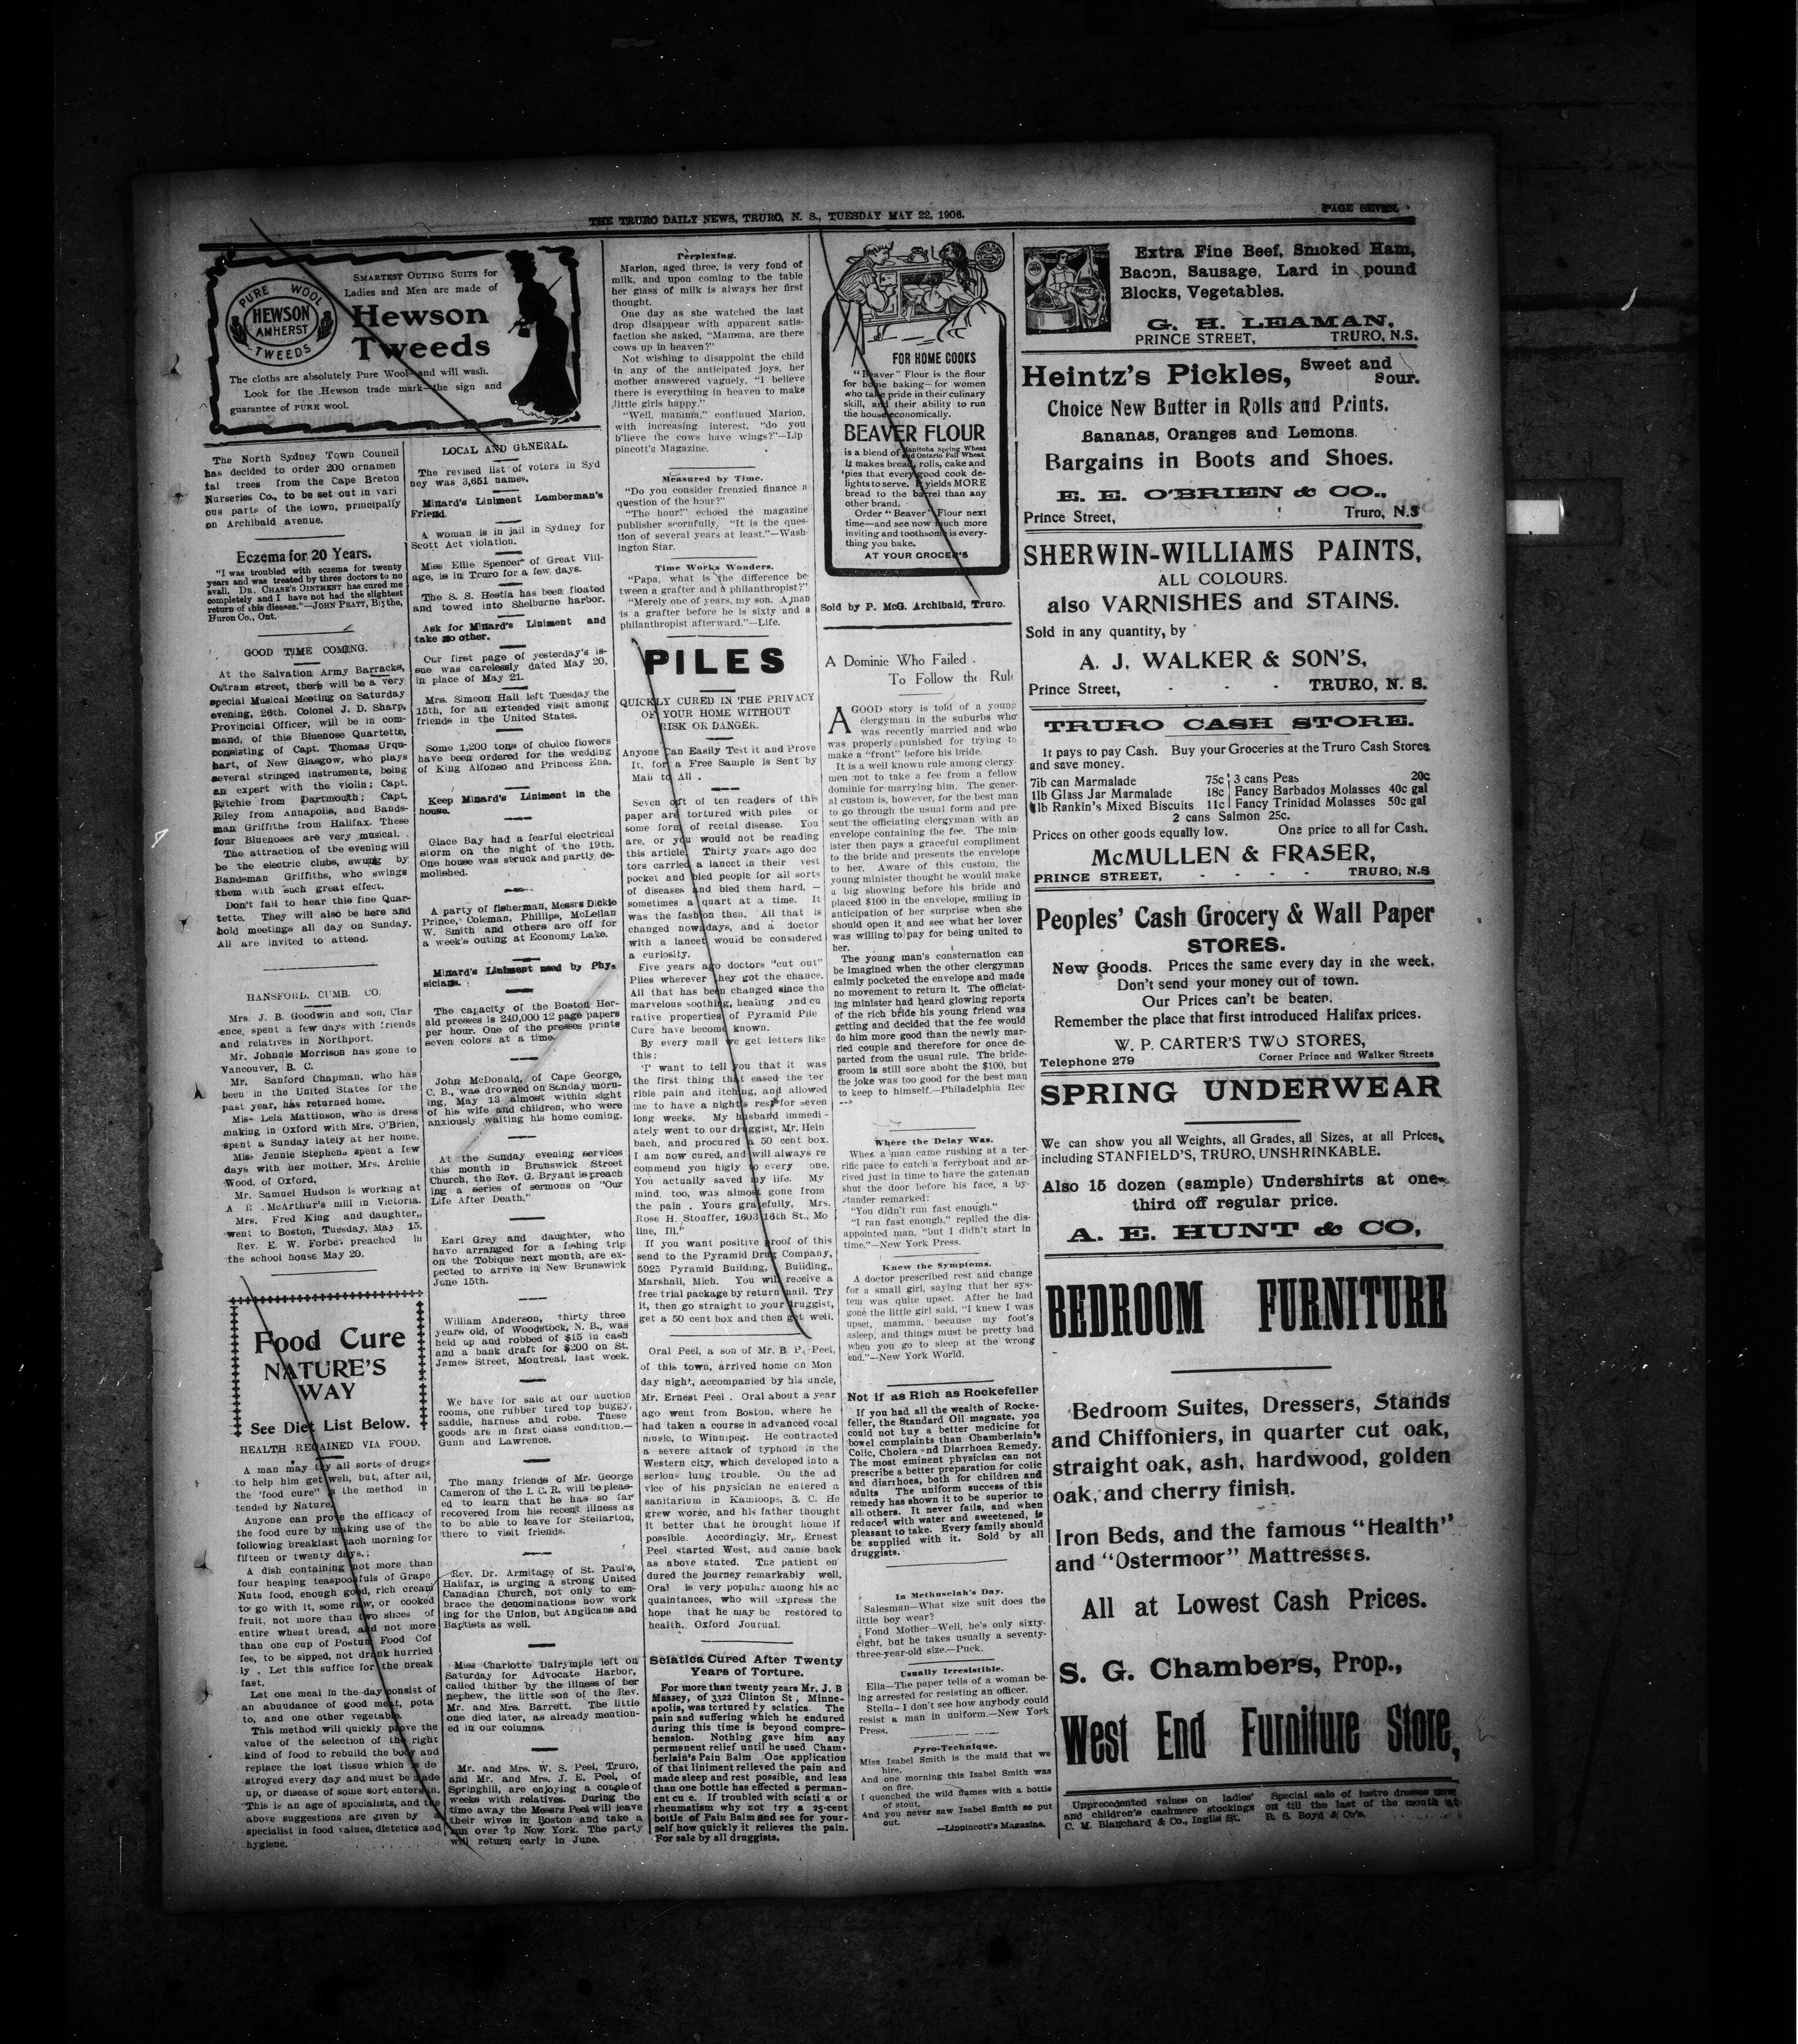 THE TRURO DAILY NEWS, TRURO, N. S., TUESDAY MAY 22, 1906.
PAGE SEVEN.
PURE WOOL
HEWSON
AMHERST
TWEEDS
SMARTEST OUTING SUITS for
Ladies and Men are made of
Hewson
Tweeds
The cloths are absolutely Pure Wool—and will wash.
Look for the Hewson trade mark—the sign and
guarantee of PURE wool.
The North Sydney Town Council
has decided to order 200 ornamen
tal trees from the Cape Breton
Nurseries Co., to be set out in vari
ous parts of the town, principally
on Archibald avenue.
Eczema for 20 Years.
"I was troubled with eczema for twenty
years and was treated by three doctors to no
avail. DR. CHASE'S OINTMENT has cured me
completely and I have not had the slightest
return of this disease."—JOHN PRATT, Blythe,
Huron Co., Ont.
GOOD TIME COMING.
At the Salvation Army Barracks,
Outram street, there will be a very
special Musical Meeting on Saturday
evening, 26th. Colonel J. D. Sharp,
Provincial Officer, will be in com-
mand, of this Bluenose Quartette,
consisting of Capt. Thomas Urqu-
hart, of New Glasgow, who plays
several stringed instruments, being
an expert with the violin; Capt.
Ritchie from Dartmouth; Capt.
Riley from Annapolis, and Bands-
man Griffiths from Halifax. These
four Bluenoses are very musical.
The attraction of the evening will
be the electric clubs, swung by
Bandsman Griffiths, who swings
them with such great effect.
Don't fail to hear this fine Quar-
tette. They will also be here and
hold meetings all day on Sunday.
All are invited to attend.
HANSFORD, CUMB. CO.
Mrs. J. B. Goodwin and son, Clar
ence, spent a few days with friends
and relatives in Northport.
Mr. Johnnie Morrison has gone to
Vancouver, B. C.
Mr. Sanford Chapman, who has
been in the United States for the
past year, has returned home.
Miss Lela Mattinson, who is dress
making in Oxford with Mrs. O'Brien,
spent a Sunday lately at her home.
Miss Jennie Stephens spent a few
days with her mother, Mrs. Archie
Wood, of Oxford.
Mr. Samuel Hudson is working at
A R. McArthur's mill in Victoria.
Mrs. Fred King and daughter,
went to Boston, Tuesday, May 15.
Rev. E. W. Forbes preached in
the school house May 20.
Food Cure
NATURE'S
WAY
See Diet List Below.
HEALTH REGAINED VIA FOOD.
A man may try all sorts of drugs
to help him get well, but, after all,
the "food cure" is the method in
tended by Nature.
Anyone can prove the efficacy of
the food cure by making use of the
following breakfast each morning for
fifteen or twenty days.;
A dish containing not more than
four heaping teaspoonfuls of Grape
Nuts food, enough good, rich cream
to go with it, some raw, or cooked
fruit, not more than two slices of
entire wheat bread, and not more
than one cup of Postum Food Cof
fee, to be sipped, not drank hurried
ly . Let this suffice for the break
fast.
Let one meal in the day consist of
an abundance of good meat, pota
to, and one other vegetable.
This method will quickly prove the
value of the selection of the right
kind of food to rebuild the body and
replace the lost tissue which is de
stroyed every day and must be made
up, or disease of some sort enters in.
This is an age of specialists, and the
above suggestions are given by
specialist in food values, dietetics and
hygiene.
LOCAL AND GENERAL.
The revised list of voters in Syd
ney was 3,651 names.
Minard's Liniment Lumberman's
Friend.
A woman is in jail in Sydney for
Scott Act violation.
Miss Ellie Spencer of Great Vill-
age, is in Truro for a few days.
The S. S. Hestia has been floated
and towed into Shelburne harbor.
Ask for Minard's Liniment and
take no other.
Our first page of yesterday's is-
sue was carelessly dated May 20,
in place of May 21.
Mrs. Simeon Hall left Tuesday the
15th, for an extended visit among
friends in the United States.
Some 1,200 tons of choice flowers
have been ordered for the wedding
of King Alfonso and Princess Ena.
Keep Minard's Liniment in the
house.
Glace Bay had a fearful electrical
storm on the night of the 19th.
One house was struck and partly de-
molished.
A party of fisherman, Messrs Dickie
Prince, Coleman, Phillips, McLellan
W. Smith and others are off for
a week's outing at Economy Lake.
Minard's Liniment used by Phy-
sicians.
The capacity of the Boston Her-
ald presses is 240,000 12 page papers
per hour. One of the presses prints
seven colors at a time.
John McDonald, of Cape George,
C. B., was drowned on Sunday morn-
ing, May 13 almost within sight
of his wife and children, who were
anxiously waiting his home coming.
At the Sunday evening services
this month in Brunswick Street
Church, the Rev. G. Bryant is preach
ing a series of sermons on "Our
Life After Death."
Earl Grey and daughter, who
have arranged for a fishing trip
on the Tobique next month, are ex-
pected to arrive in New Brunswick
June 15th.
William Anderson, thirty three
years old, of Woodstock, N. B., was
held up and robbed of $15 in cash
and a bank draft for $200 on St.
James Street, Montreal, last week.
We have for sale at our auction
rooms, one rubber tired top buggy,
saddle, harness and robe. These
goods are in first class condition.—
Gunn and Lawrence.
The many friends of Mr. George
Cameron of the I. C. R. will be pleas-
ed to learn that he has so far
recovered from his recent illness as
to be able to leave for Stellarton,
there to visit friends.
Rev. Dr. Armitage of St. Paul's,
Halifax, is urging a strong United
Canadian Church, not only to em-
brace the denominations now work
ing for the Union, but Anglicans and
Baptists as well.
Miss Charlotte Dalrymple left on
Saturday for Advocate Harbor,
called thither by the illness of her
nephew, the little son of the Rev.
Mr. and Mrs. Barrett. The little
one died later, as already mention-
ed in our columns.
Mr. and Mrs. W. S. Peel, Truro,
and Mr. and Mrs. J. E. Peel, of
Springhill, are enjoying a couple of
weeks with relatives. During the
time away the Messrs Peel will leave
their wives in Boston and take a
run over to New York. The party
will return early in June.
Perplexing.
Marion, aged three, is very fond of
milk, and upon coming to the table
her glass of milk is always her first
thought.
One day as she watched the last
drop disappear with apparent satis-
faction she asked, "Mamma, are there
cows up in heaven?"
Not wishing to disappoint the child
in any of the anticipated joys, her
mother answered vaguely, "I believe
there is everything in heaven to make
little girls happy."
"Well, mamma," continued Marion,
with increasing interest, "do you
b'lieve the cows have wings?"—Lip
pincott's Magazine.
Measured by Time.
"Do you consider frenzied finance a
question of the hour?"
"The hour!" echoed the magazine
publisher scornfully, "It is the ques-
tion of several years at least."—Wash-
ington Star.
Time Works Wonders.
"Papa, what is the difference be
tween a grafter and a philanthropist?"
"Merely one of years, my son. A man
is a grafter before he is sixty and a
philanthropist afterward."—Life.
PILES
QUICKLY CURED IN THE PRIVACY
OF YOUR HOME WITHOUT
RISK OR DANGER.
Anyone Can Easily Test it and Prove
It, for a Free Sample is Sent by
Mail to All .
Seven out of ten readers of this
paper are tortured with piles or
some form of rectal disease. You
are, or you would not be reading
this article. Thirty years ago doc
tors carried a lancet in their vest
pocket and bled people for all sorts
of diseases and bled them hard, —
sometimes a quart at a time. It
was the fashion then. All that is
changed nowadays, and a doctor
with a lancet would be considered
a curiosity.
Five years ago doctors "cut out"
Piles wherever they got the chance.
All that has been changed since the
marvelous soothing, healing and cu
rative properties of Pyramid Pile
Cure have become known.
By every mail we get letters like
this:
'I' want to tell you that it was
the first thing that eased the ter
rible pain and itching, and allowed
me to have a night's rest for seven
long weeks. My husband immedi-
ately went to our druggist, Mr. Hein
bach, and procured a 50 cent box.
I am now cured, and will always re
commend you higly to every one.
You actually saved my life. My
mind, too, was almost gone from
the pain . Yours gratefully, Mrs.
Rose H. Stouffer, 1603 16th St., Mo
line, Ill."
If you want positive proof of this
send to the Pyramid Drug Company,
5925 Pyramid Building, Building,,
Marshall, Mich. You will receive a
free trial package by return mail. Try
it, then go straight to your druggist,
get a 50 cent box and then get well.
Oral Peel, a son of Mr. B P. Peel,
of this town, arrived home on Mon
day night, accompanied by his uncle,
Mr. Ernest Peel . Oral about a year
ago went from Boston, where he
had taken a course in advanced vocal
music, to Winnipeg. He contracted
a severe attack of typhoid in the
Western city, which developed into a
serious lung trouble. On the ad
vice of his physician he entered a
sanitarium in Kamloops, B. C. He
grew worse, and his father thought
it better that he brought home if
possible. Accordingly, Mr. Ernest
Peel started West, and came back
as above stated. The patient en
dured the journey remarkably well.
Oral is very popular among his ac
quaintances, who will express the
hope that he may be restored to
health. Oxford Journal.
Sciatica Cured After Twenty
Years of Torture.
For more than twenty years Mr. J. B
Massey, of 3322 Clinton St, Minne-
apolis, was tortured by sciatica. The
pain and suffering which he endured
during this time is beyond compre-
hension. Nothing gave him any
permanent relief until he used Cham-
berlain's Pain Balm One application
of that liniment relieved the pain and
made sleep and rest possible, and less
than one bottle has effected a perman-
ent cu e. If troubled with sciati a or
rheumatism why not try a 25-cent
bottle of Pain Balm and see for your-
self how quickly it relieves the pain.
For sale by all druggists.
FOR HOME COOKS
"Beaver" Flour is the flour
for home baking—for women
who take pride in their culinary
skill, and their ability to run
the house economically.
BEAVER FLOUR
is a blend of Manitoba Spring Wheat
and Ontario Fall Wheat.
It makes bread, rolls, cake and
pies that every good cook de-
lights to serve. It yields MORE
bread to the barrel than any
other brand.
Order "Beaver" Flour next
time—and see how much more
inviting and toothsome is every-
thing you bake.
AT YOUR GROCER'S
Sold by P. McG. Archibald, Truro.
A Dominie Who Failed
To Follow the Rule
A GOOD story is told of a young
clergyman in the suburbs who
was recently married and who
was properly punished for trying to
make a "front" before his bride.
It is a well known rule among clergy-
men not to take a fee from a fellow
dominie for marrying him. The gener-
al custom is, however, for the best man
to go through the usual form and pre-
sent the officiating clergyman with an
envelope containing the fee. The min-
ister then pays a graceful compliment
to the bride and presents the envelope
to her. Aware of this custom, the
young minister thought he would make
a big showing before his bride and
placed $100 in the envelope, smiling in
anticipation of her surprise when she
should open it and see what her lover
was willing to pay for being united to
her.
The young man's consternation can
be imagined when the other clergyman
calmly pocketed the envelope and made
no movement to return it. The officiat-
ing minister had heard glowing reports
of the rich bride his young friend was
getting and decided that the fee would
do him more good than the newly mar-
ried couple and therefore for once de-
parted from the usual rule. The bride-
groom is still sore about the $100, but
the joke was too good for the best man
to keep to himself.—Philadelphia Rec
Where the Delay Was.
When a man came rushing at a ter-
rific pace to catch a ferryboat and ar-
rived just in time to have the gateman
shut the door before his face, a by-
stander remarked:
"You didn't run fast enough."
"I ran fast enough," replied the dis-
appointed man, "but I didn't start in
time."—New York Press.
Knew the Symptoms.
A doctor prescribed rest and change
for a small girl, saying that her sys-
tem was quite upset. After he had
gone the little girl said, "I knew I was
upset, mamma, because my foot's
asleep, and things must be pretty bad
when you go to sleep at the wrong
end."—New York World.
Not if as Rich as Rockefeller
If you had all the wealth of Rocke-
feller, the Standard Oil magnate, you
could not buy a better medicine for
bowel complaints than Chamberlain's
Colic, Cholera and Diarrhoea Remedy.
The most eminent physician can not
prescribe a better preparation for colic
and diarrhoea, both for children and
adults The uniform success of this
remedy has shown it to be superior to
all others. It never fails, and when
reduced with water and sweetened, is
pleasant to take. Every family should
be supplied with it. Sold by all
druggists.
In Methuselah's Day.
Salesman—What size suit does the
little boy wear?
Fond Mother—Well, he's only sixty-
eight, but he takes usually a seventy-
three-year-old size.—Puck.
Usually Irresistible.
Ella—The paper tells of a woman be-
ing arrested for resisting an officer.
Stella—I don't see how anybody could
resist a man in uniform.—New York
Press.
Pyro-Technique.
Miss Isabel Smith is the maid that we
hire.
And one morning this Isabel Smith was
on fire.
I quenched the wild flames with a bottle
of stout,
And you never saw Isabel Smith so put
out.
—Lippincott's Magazine.
Extra Fine Beef, Smoked Ham,
Bacon, Sausage, Lard in pound
Blocks, Vegetables.
G. H. LEAMAN,
PRINCE STREET, TRURO, N.S.
Heintz's Pickles, Sweet and
Sour.
Choice New Butter in Rolls and Prints.
Bananas, Oranges and Lemons.
Bargains in Boots and Shoes.
E. E. O'BRIEN & CO.,
Prince Street, Truro, N.S
SHERWIN-WILLIAMS PAINTS,
ALL COLOURS.
also VARNISHES and STAINS.
Sold in any quantity, by
A. J. WALKER & SON'S,
Prince Street, - - - TRURO, N. S.
TRURO CASH STORE.
It pays to pay Cash. Buy your Groceries at the Truro Cash Stores
and save money.
7lb can Marmalade 75c 3 cans Peas 20c
1lb Glass Jar Marmalade 18c Fancy Barbados Molasses 40c gal
1lb Rankin's Mixed Biscuits 11c Fancy Trinidad Molasses 50c gal
2 cans Salmon 25c.
Prices on other goods equally low. One price to all for Cash.
McMULLEN & FRASER,
PRINCE STREET, - - - - TRURO, N.S
Peoples' Cash Grocery & Wall Paper
STORES.
New Goods. Prices the same every day in the week.
Don't send your money out of town.
Our Prices can't be beaten.
Remember the place that first introduced Halifax prices.
W. P. CARTER'S TWO STORES,
Telephone 279 Corner Prince and Walker Streets
SPRING UNDERWEAR
We can show you all Weights, all Grades, all Sizes, at all Prices,
including STANFIELD'S, TRURO, UNSHRINKABLE.
Also 15 dozen (sample) Undershirts at one-
third off regular price.
A. E. HUNT & CO,
BEDROOM FURNITURE
Bedroom Suites, Dressers, Stands
and Chiffoniers, in quarter cut oak,
straight oak, ash, hardwood, golden
oak, and cherry finish.
Iron Beds, and the famous "Health"
and "Ostermoor" Mattresses.
All at Lowest Cash Prices.
S. G. Chambers, Prop.,
West End Furniture Store,
Unprecedented values on ladies'
and children's cashmere stockings
C. M. Blanchard & Co., Inglis St.
Special sale of lustre dresses now
on till the last of the month at
R. S. Boyd & Co's.